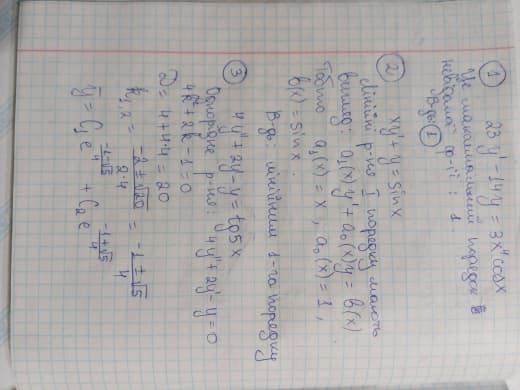 ① 23 y' - 14 y = 3x⁴ cosx
Це максимальний порядок
невідомої ф-ії : 1.
В-дь: ①
② xy' + y = sinx
Лінійні р-ня I порядку мають
вигляд: a₁(x) y' + a₀(x)y = b(x)
Тобто a₁(x) = x, a₀(x) = 1,
b(x) = sinx.
В-дь: лінійним 1-го порядку
③ 4y'' + 2y - y = tg5x
Однорідне р-ня: 4y'' + 2y' - y = 0
4k² + 2k - 1 = 0
D = 4 + 4·4 = 20
k₁,₂ = (-2 ± √20)/(2·4) = (-1 ± √5)/4
ȳ = C₁ e^((-1-√5)/4) + C₂ e^((-1+√5)/4)